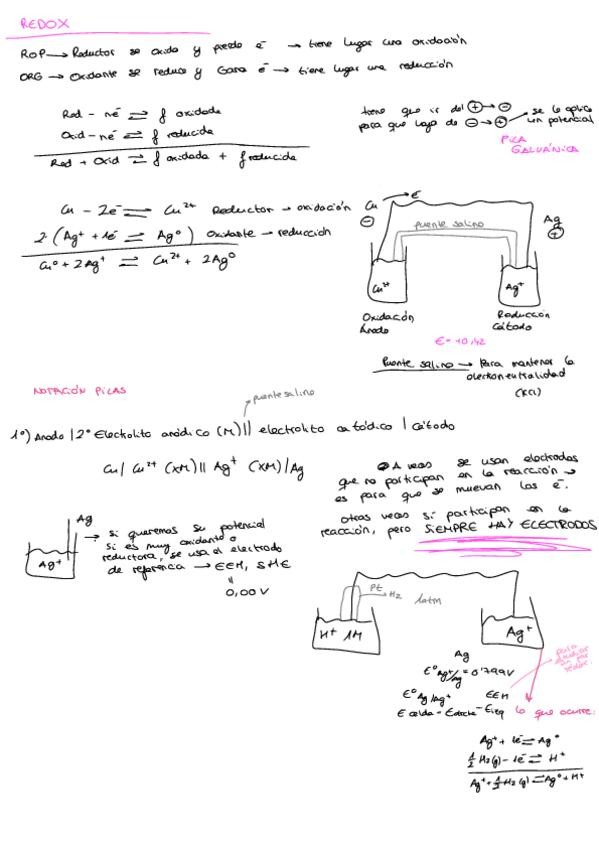 REDOX
ROP → Reductor se oxida y pierde é → tiene lugar una oxidación
ORG → Oxidante se reduce y Gana é → tiene lugar una reducción
Red - né ⇌ f oxidada
Oxid - né ⇌ f reducida
Red + Oxid ⇌ f oxidada + f reducida
tiene que ir del ⊕→⊖
para que vaya de ⊖→⊕ se le aplica un potencial
PILA
GALVÁNICA
Cu - 2é ⇌ Cu²⁺ Reductor → oxidación
2 (Ag⁺ + 1é ⇌ Ag⁰) Oxidante → reducción
Cu⁰ + 2Ag⁺ ⇌ Cu²⁺ + 2Ag⁰
Cu → é
⊖
puente salino
Ag
⊕
Cu²⁺
Ag⁺
Oxidación
Ánodo
Reducción
Cátodo
E = +0,42
Puente salino → Para mantener la
electroneutralidad
(KCl)
NOTACIÓN PILAS
puente salino
1º) Ánodo | 2º Electrolito anódico (M) || electrolito catódico | Cátodo
Cu | Cu²⁺ (XM) || Ag⁺ (XM) | Ag
A veces se usan electrodos
que no participan en la reacción →
es para que se muevan los é.
otras veces si participan en la
reacción, pero SIEMPRE HAY ELECTRODOS
Ag
Ag⁺
→ si queremos su potencial
si es muy oxidante o
reductora, se usa el electrodo
de referencia → EEH, SHE
"
0,00 V
Pt
H₂ 1atm
H⁺ 1M
Ag⁺
Ag
E⁰ Ag⁺/Ag = 0'799V
E⁰ Ag/Ag⁺ EEH
E celda = Edrcha - Eizq
para
un par
redox.
lo que ocurre:
Ag⁺ + 1é ⇌ Ag⁰
½ H₂(g) - 1é ⇌ H⁺
Ag⁺ + ½ H₂(g) ⇌ Ag⁰ + H⁺